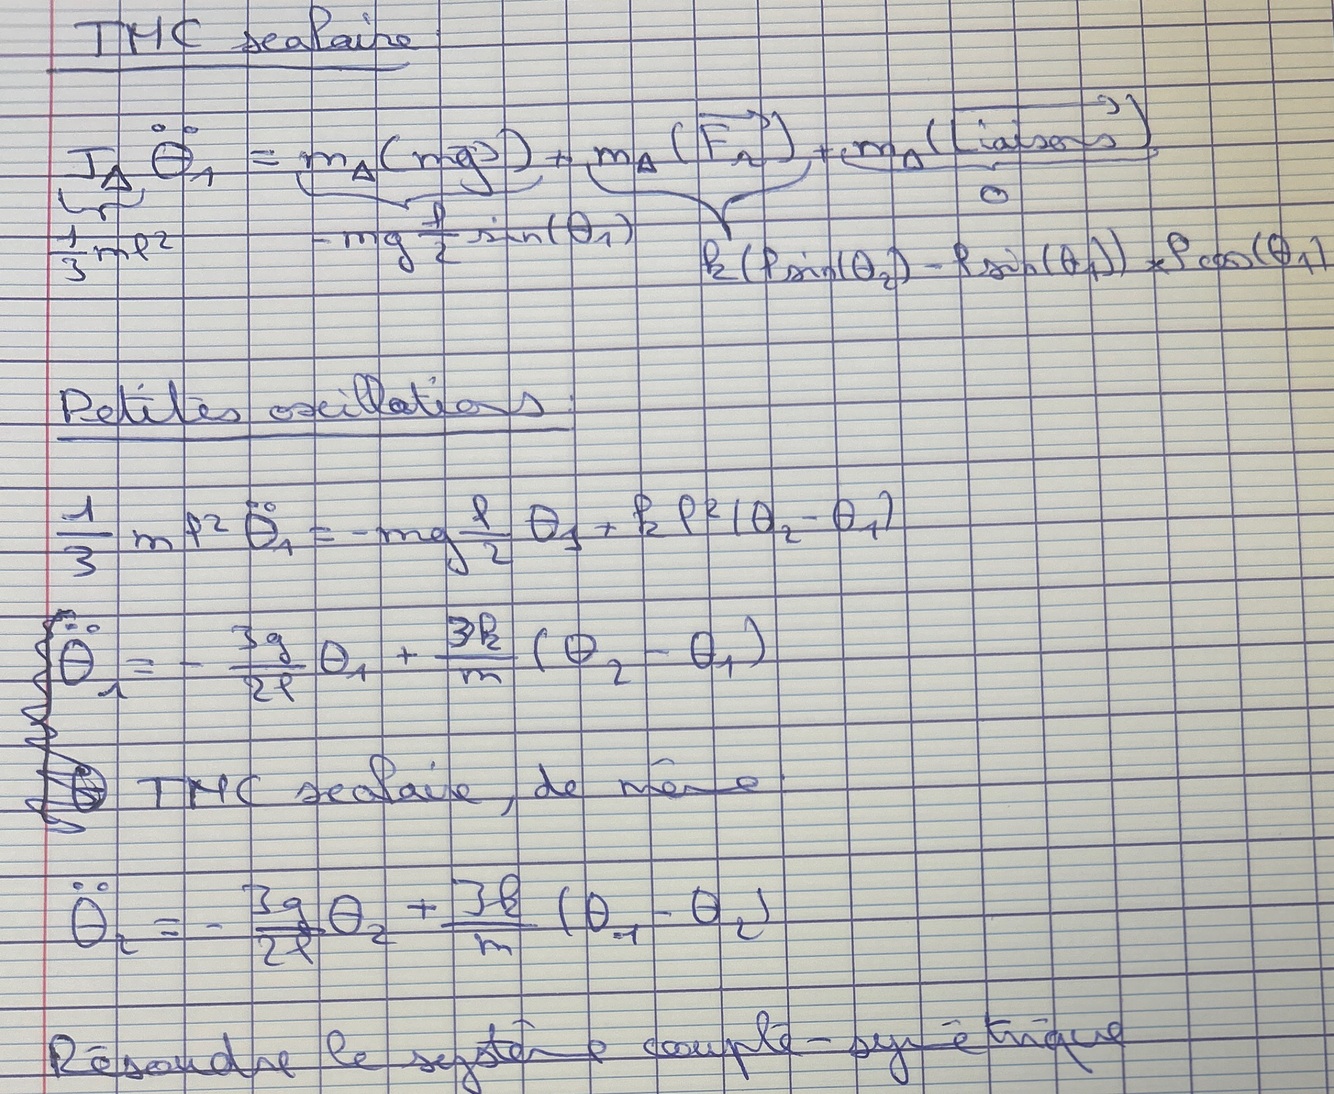 TMC scalaire
J_Δ θ̈₁ = m_Δ(mg⃗) + m_Δ(F⃗_r) + m_Δ(Liaisons⃗)
1/3 mℓ² -mg ℓ/2 sin(θ₁) k(ℓ sin(θ₂) - ℓ sin(θ₁)) × ℓ cos(θ₁) 0
Petites oscillations
1/3 mℓ² θ̈₁ = -mg ℓ/2 θ₁ + kℓ²(θ₂ - θ₁)
θ̈₁ = - 3g/2ℓ θ₁ + 3k/m (θ₂ - θ₁)
TMC scalaire, de même
θ̈₂ = - 3g/2ℓ θ₂ + 3k/m (θ₁ - θ₂)
Résoudre le système couplé-symétrique